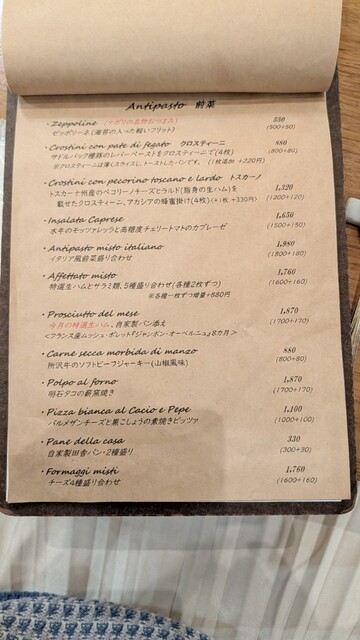 Antipasto 前菜
・Zeppoline (ナポリの名物おつまみ) 550
ゼッポリーネ(海苔の入った軽いフリット) (500+50)
・Crostini con pate di fegato クロスティーニ 880
サドルバック種豚のレバーペーストをクロスティーニで(4枚) (800+80)
※クロスティーニは薄くスライスし、トーストしたパンです。 (1枚追加 +220円)
・Crostini con pecorino toscano e lardo トスカーノ
トスカーナ州産のペコリーノチーズとラルド(脂身の生ハム)を 1,320
載せたクロスティーニ、アカシアの蜂蜜掛け(4枚) (+1枚 +330円) (1200+120)
・Insalata Caprese 1,650
水牛のモッツァレッラと高糖度チェリートマトのカプレーゼ (1500+150)
・Antipasto misto italiano 1,980
イタリア風前菜盛り合わせ (1800+180)
・Affettato misto 1,760
特選生ハムとサラミ類、5種盛り合わせ(各種2枚ずつ) (1600+160)
※各種一枚ずつ増量+880円
・Prosciutto del mese 1,870
今月の特選生ハム、自家製パン添え (1700+170)
<フランス産ムッシュ・ポレット『ジャンボン・オーベルニュ』8カ月>
・Carne secca morbida di manzo 880
所沢牛のソフトビーフジャーキー(山椒風味) (800+80)
・Polpo al forno 1,870
明石タコの薪窯焼き (1700+170)
・Pizza bianca al Cacio e Pepe 1,100
パルメザンチーズと黒こしょうの素焼きピッツァ (1000+100)
・Pane della casa 330
自家製田舎パン・2種盛り (300+30)
・Formaggi misti 1,760
チーズ4種盛り合わせ (1600+160)